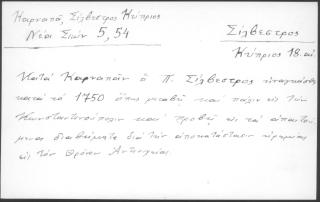 Καρναπᾶ, Σίλβεστρος Κύπριος
Νέα Σιών 5, 54
Σίλβεστρος
Κύπριος 18. αἰ.
Κατά Καρναπᾶν ὁ Π. Σίλβεστρος ἠναγκάσθη
κατά τό 1750 ὅπως μεταβῇ καί πάλιν εἰς τήν
Κωνσταντινούπολιν καί προβῇ εἰς τά ἀπαιτού-
μενα διαβήματα διά τήν ἀποκατάστασιν εἰρήνης
εἰς τόν Θρόνον Ἀντιοχείας.